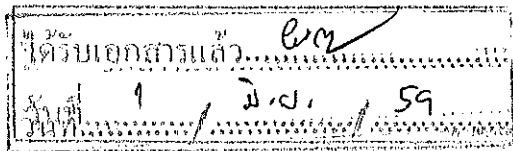 ได้รับเอกสารแล้ว
วันที่ 1 / มิ.ย. / 59